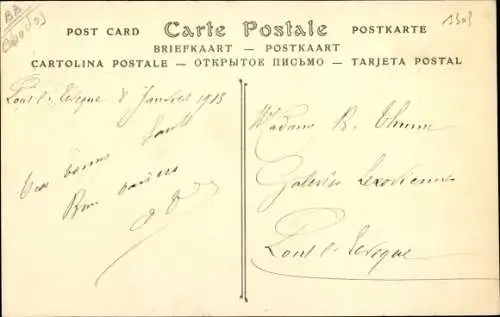 BB
Calvados
1303
POST CARD Carte Postale POSTKARTE
BRIEFKAART — POSTKAART
CARTOLINA POSTALE — ОТКРЫТОЕ ПИСЬМО — TARJETA POSTAL
Pont l'Eveque 8 Janvier 1913
Santé
bonne
Bons baisers
Madame B. Thumm
Galeries Lexoviennes
Pont l'Eveque